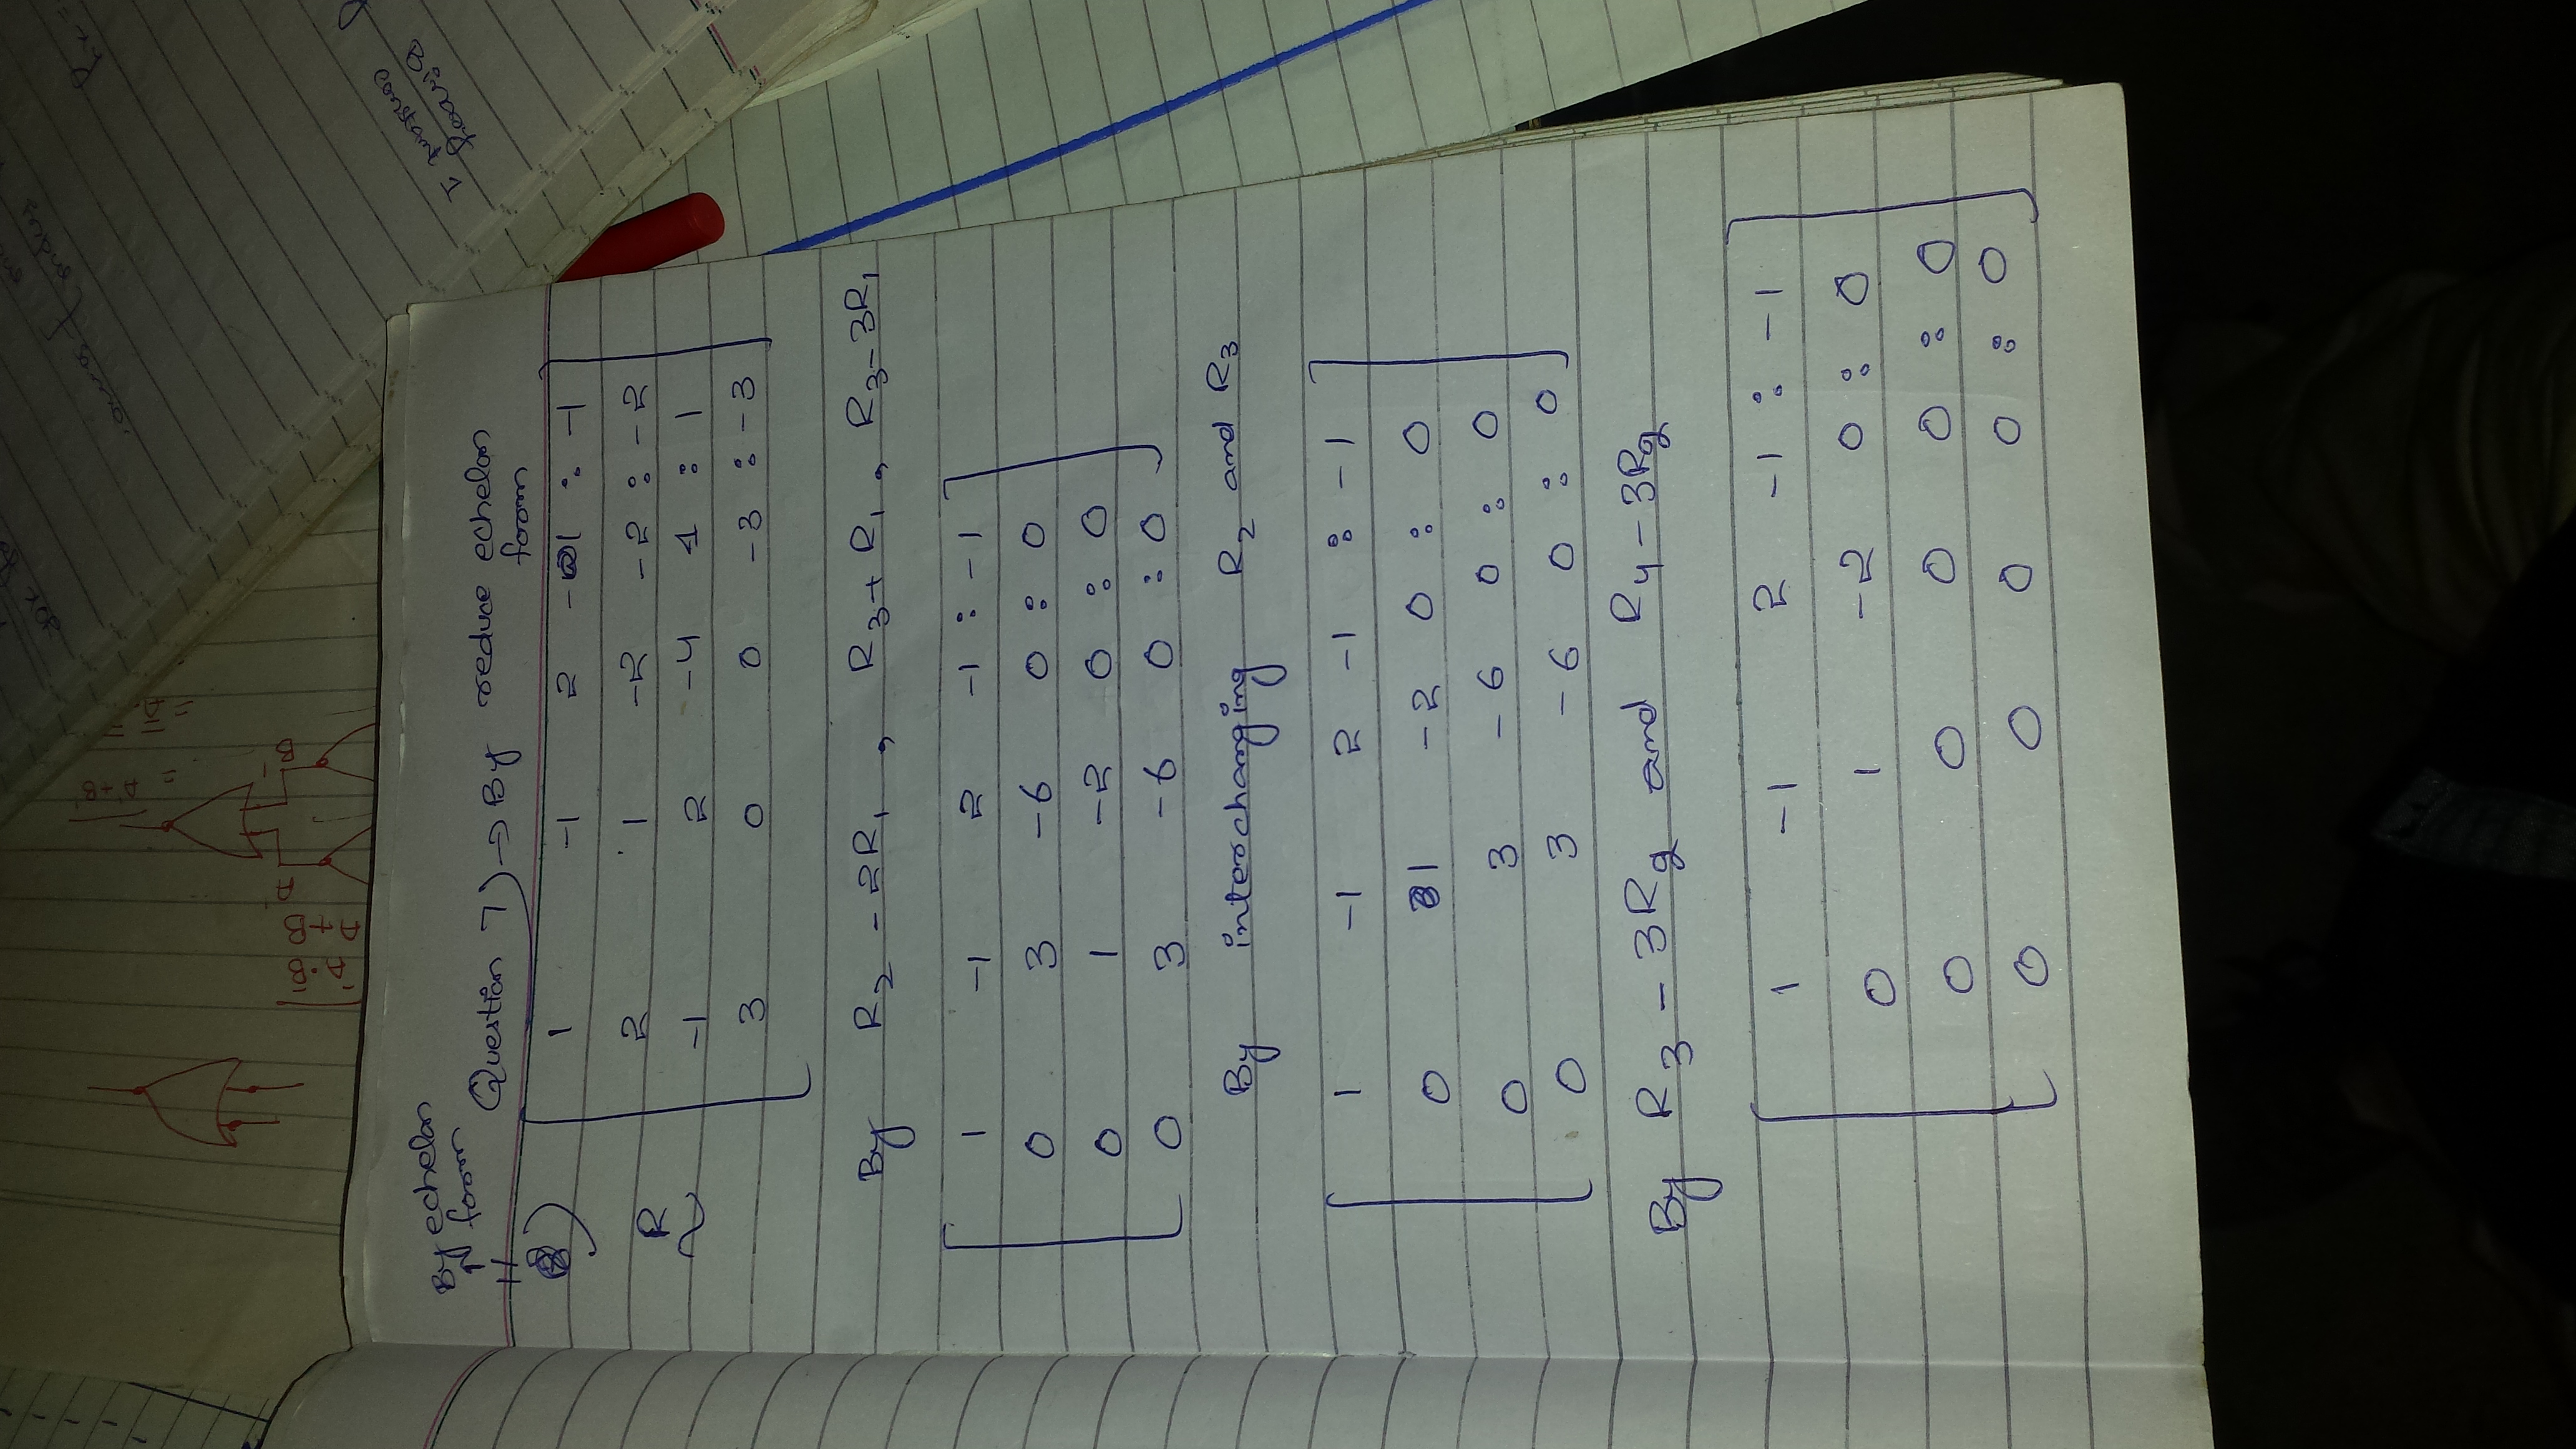 A·B
A+B
A
B
= A+B
Binary
constant 1
By echelon
form
Question 7) → By reduce echelon
form
1 -1 2 -1 : -1
R 2 1 -2 -2 : -2
~ -1 2 -4 1 : 1
3 0 0 -3 : -3
By R2 - 2R1 , R3 + R1 , R3 - 3R1
1 -1 2 -1 : -1
0 3 -6 0 : 0
0 1 -2 0 : 0
0 3 -6 0 : 0
By interchanging R2 and R3
1 -1 2 -1 : -1
0 1 -2 0 : 0
0 3 -6 0 : 0
0 3 -6 0 : 0
By R3 - 3R2 and R4 - 3R2
1 -1 2 -1 : -1
0 1 -2 0 : 0
0 0 0 0 : 0
0 0 0 0 : 0